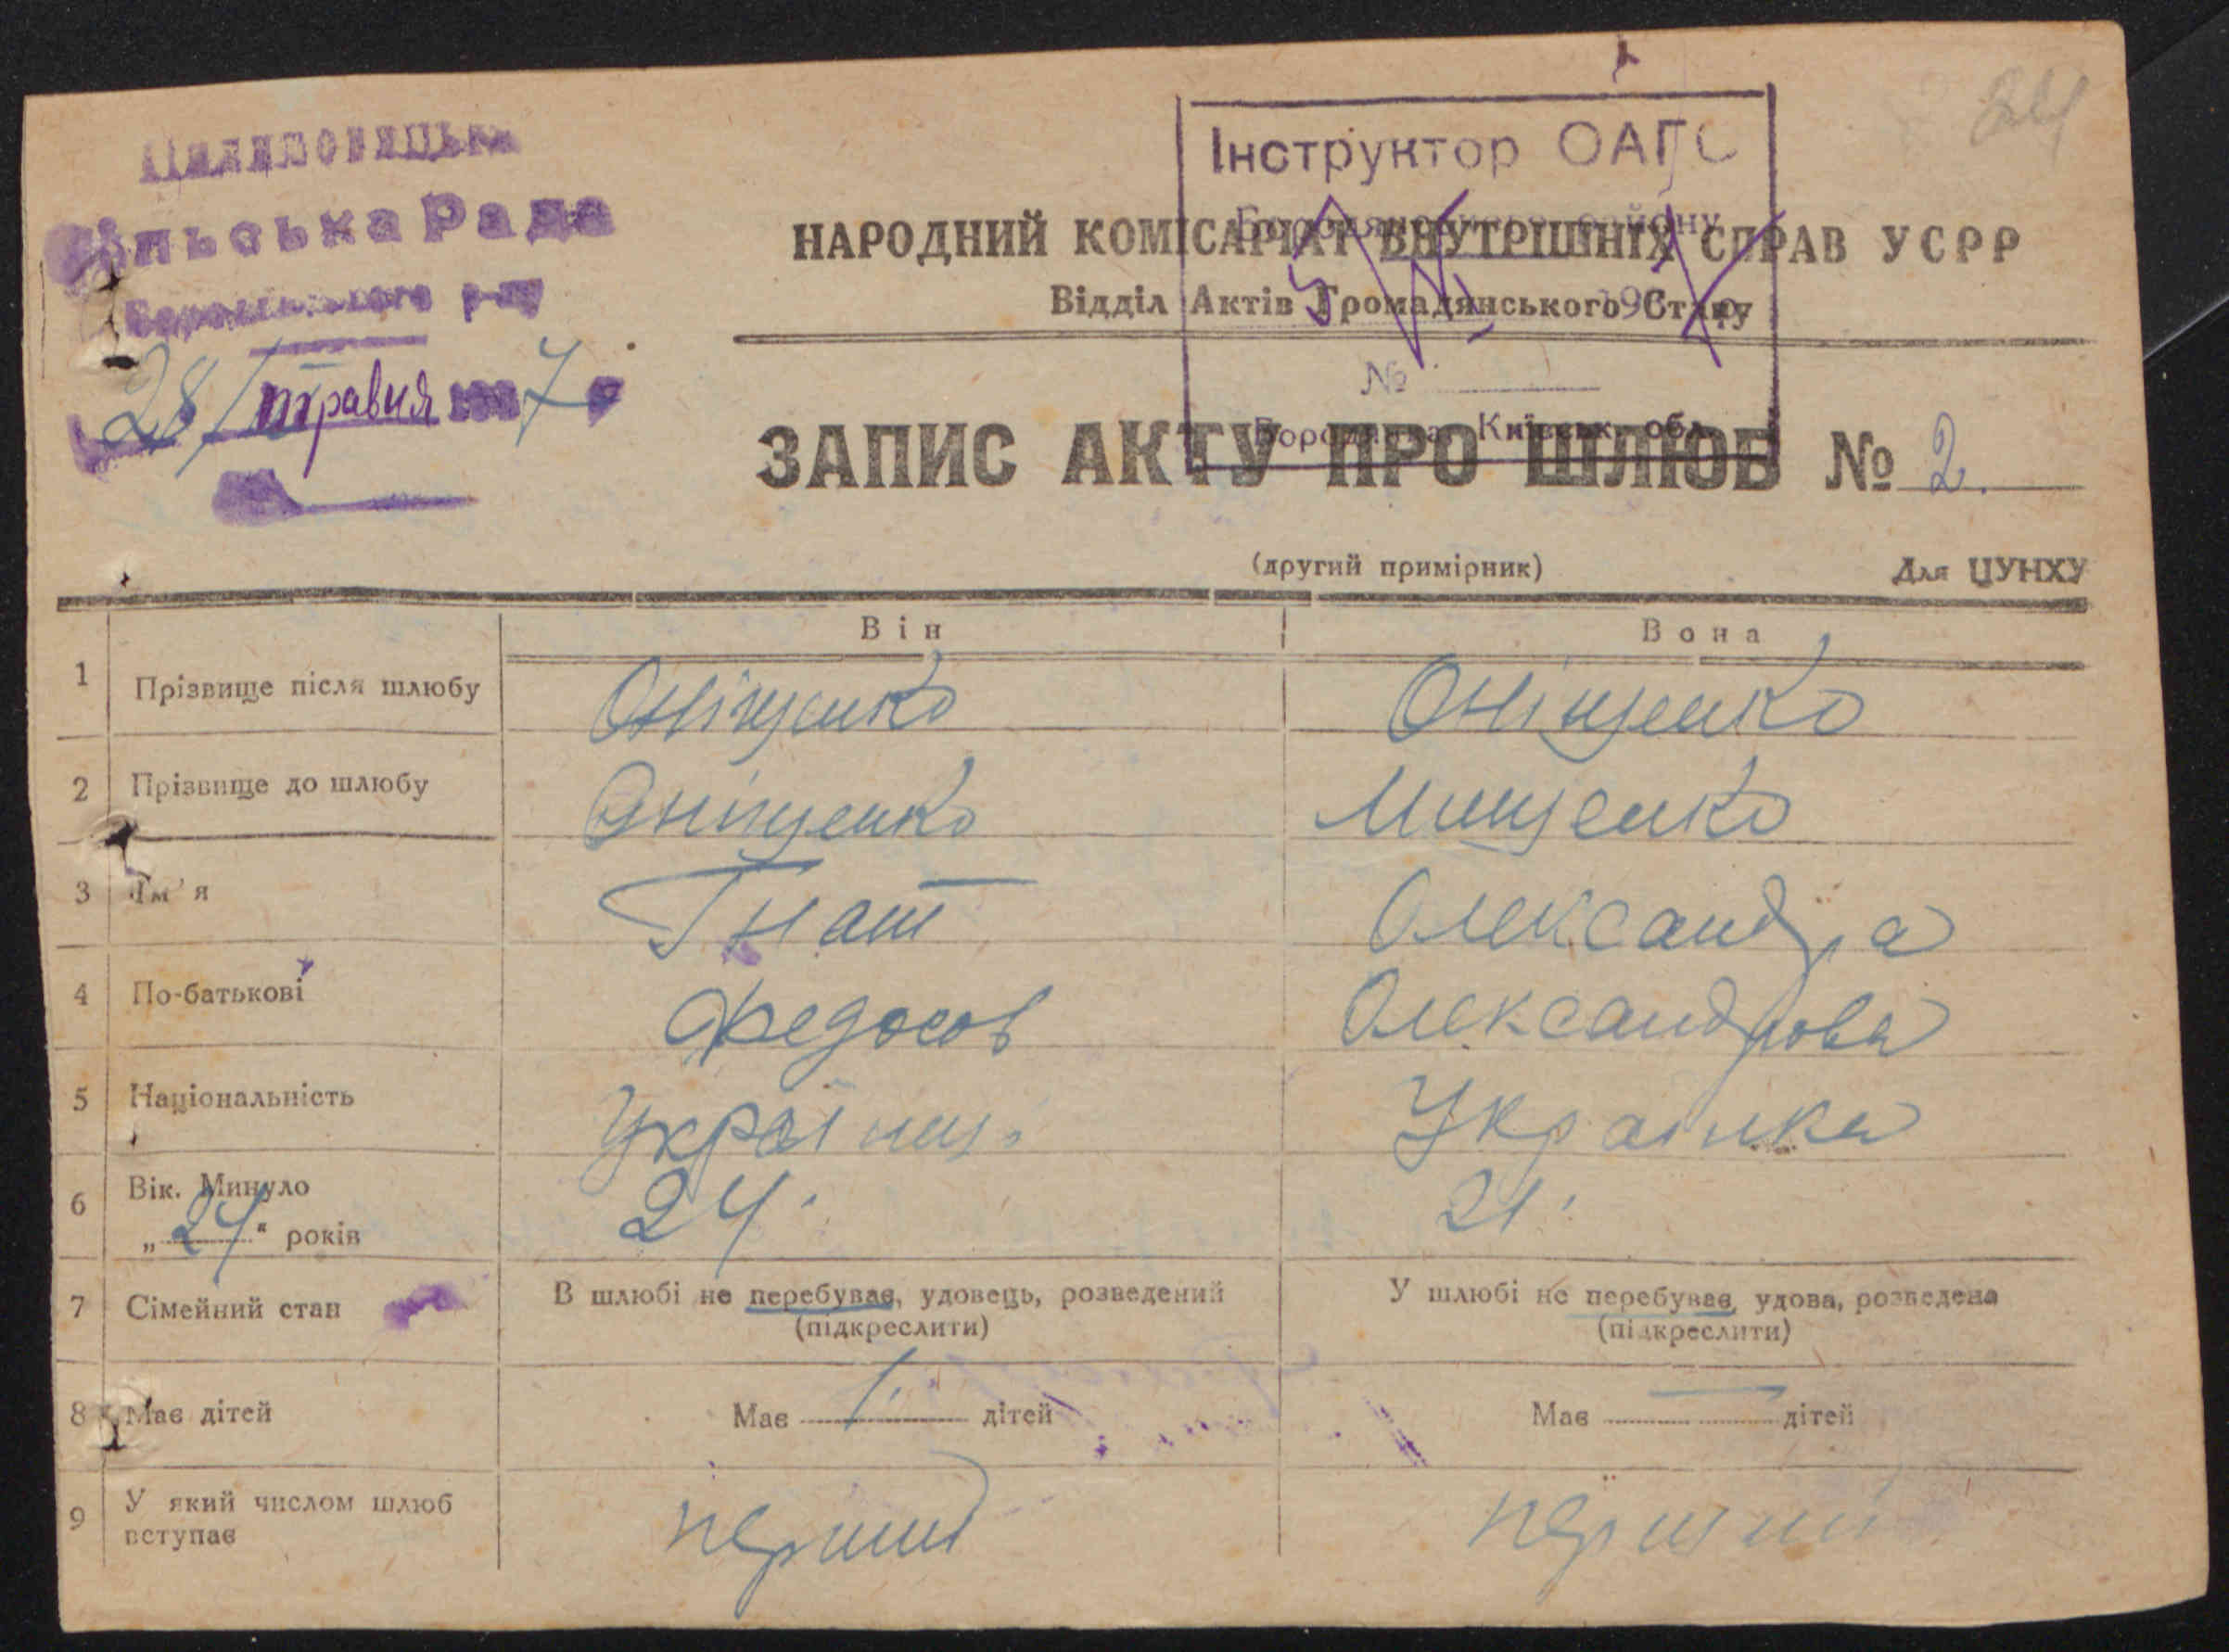 Пилиповицька
Сільська Рада
Бородянського р-ну
28/травня 1937 р
Інструктор ОАГС
Бородянського району
193
№
Бородянка Київськ. обл.
НАРОДНИЙ КОМІСАРІАТ ВНУТРІШНІХ СПРАВ УСРР
Відділ Актів Громадянського Стану
ЗАПИС АКТУ ПРО ШЛЮБ № 2.
(другий примірник) Для ЦУНХУ
Він Вона
1 Прізвище після шлюбу Оніщенко Оніщенко
2 Прізвище до шлюбу Оніщенко Мищенко
3 Ім'я Гнат Олександра
4 По-батькові Федосов Олександрова
5 Національність Українц. Українка
6 Вік. Минуло 24. 21.
„24“ років
7 Сімейний стан В шлюбі не перебуває, удовець, розведений У шлюбі не перебуває, удова, розведена
(підкреслити) (підкреслити)
8 Має дітей Має 1. дітей Має — дітей
9 У який числом шлюб перший перший
вступає